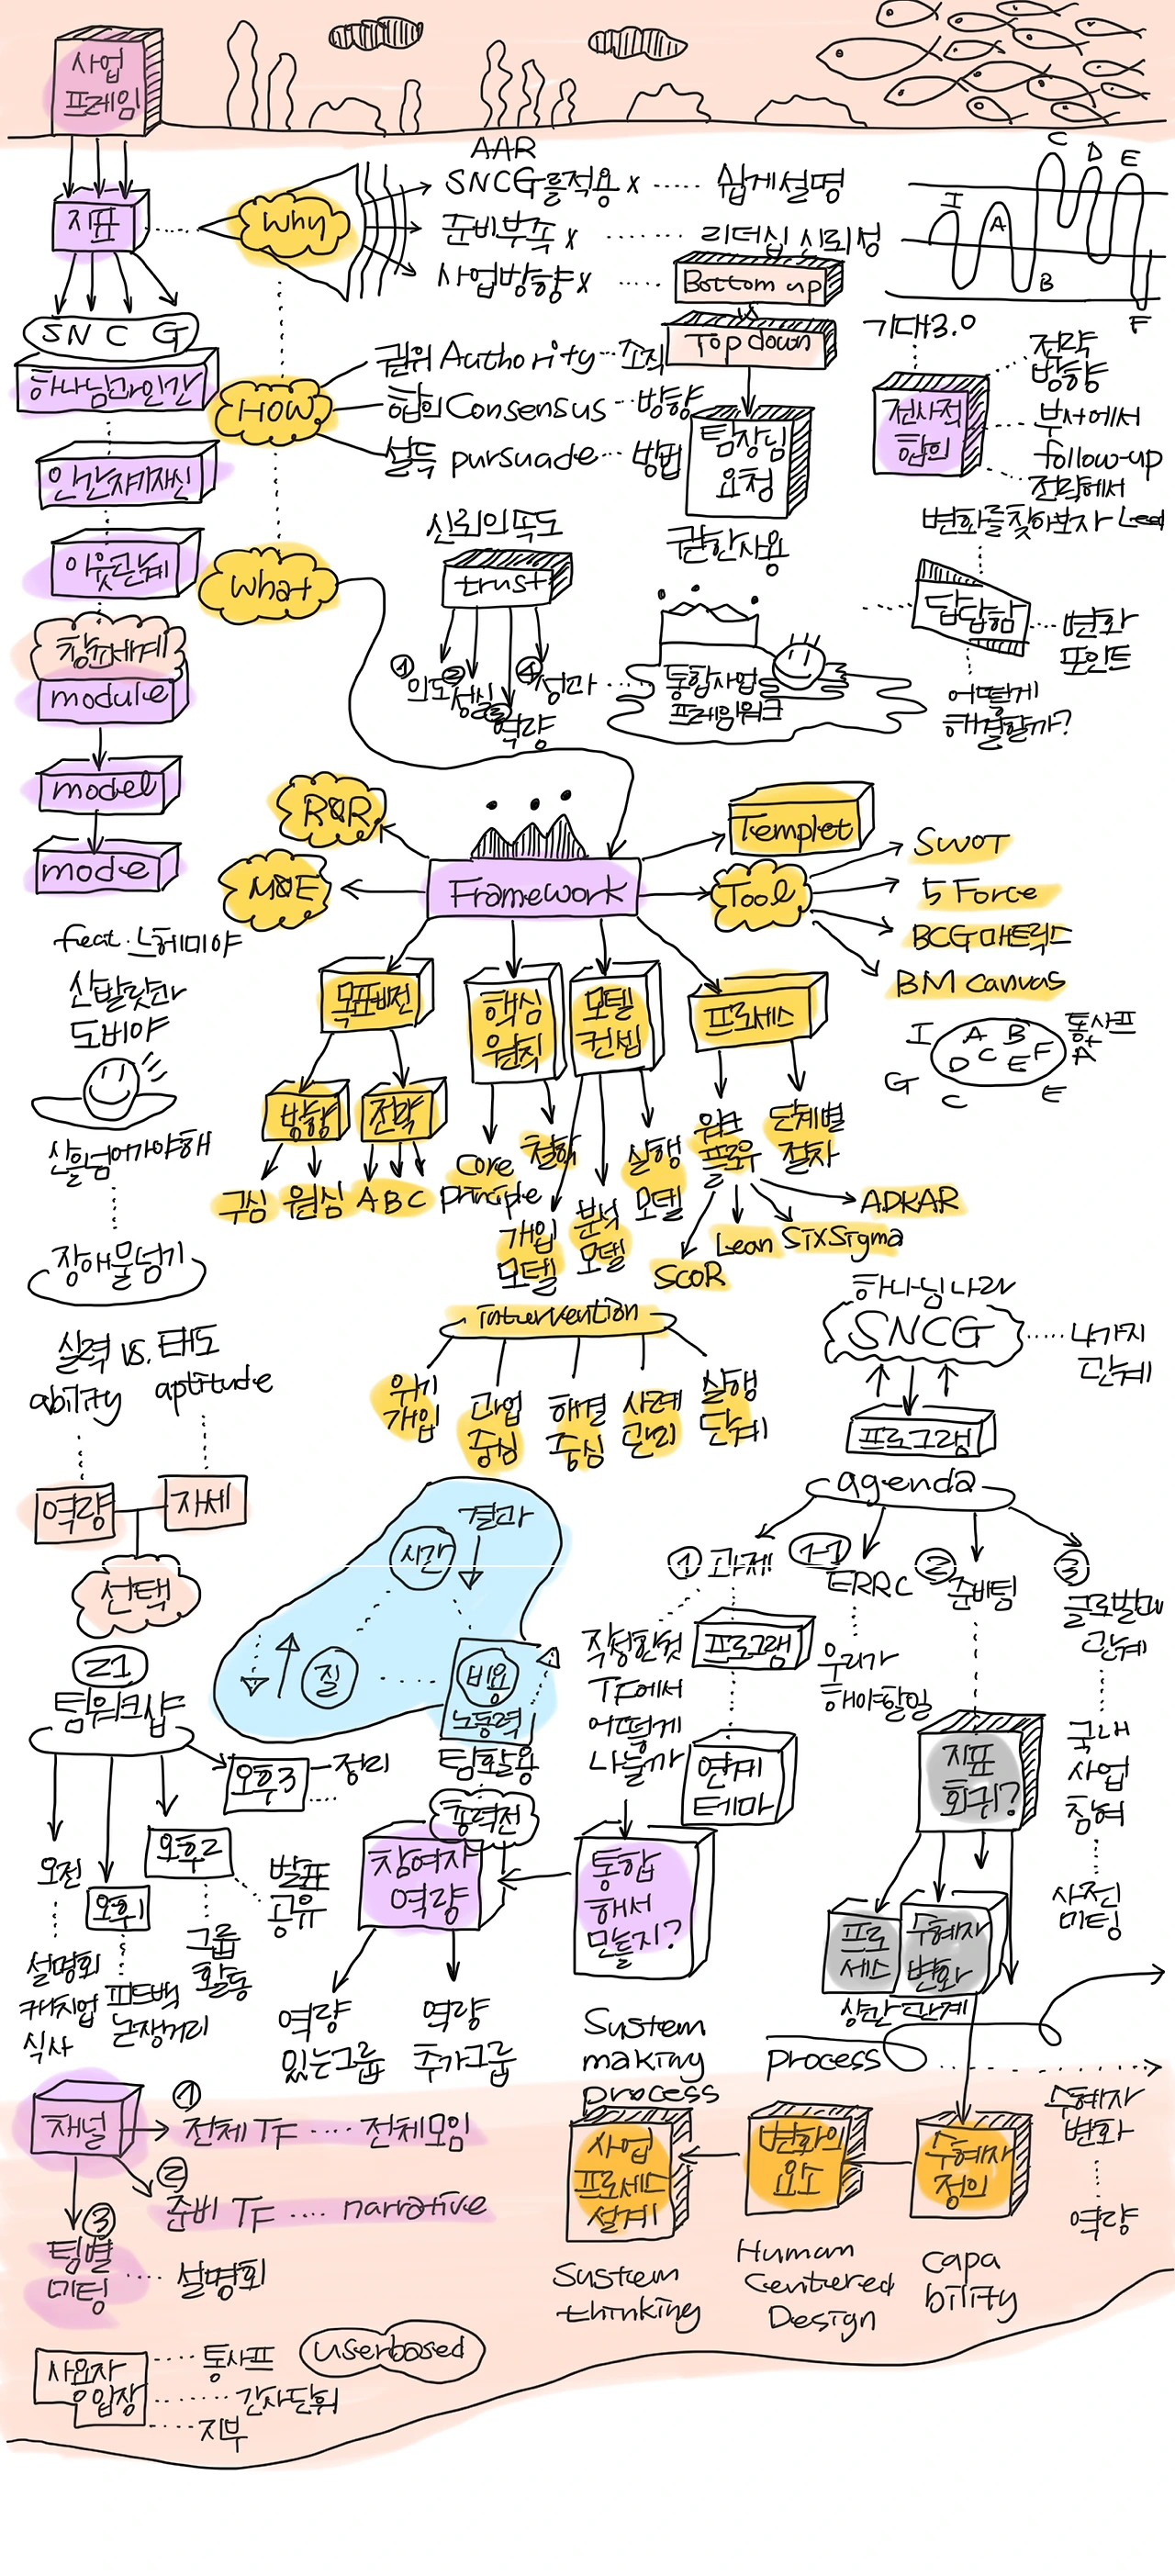 사업
프레임
지표
SNCG
하나님과인간
인간자기자신
이웃관계
창조세계
module
model
mode
Why
AAR
SNCG를적용 x ..... 쉽게설명
준비부족 x ...... 리더십 신뢰성
사업방향 x .....
Bottom up
Top down
HOW
권위 Authority ... 조직
합의 Consensus ... 방향
설득 pursuade ... 방법
팀장님
요청
권한사용
What
신뢰의 속도
trust
① 의도
② 성실
③ 역량
④ 성과 .....
통합사업
프레임워크
I
A
B
C
D
E
F
기대3.0
전사적
합의
전략
방향
부서에서
follow-up
전략에서
변화를찾아보자 Lead
답답함
변화
포인트
어떻게
해결할까?
R&R
M&E
Framework
Templet
Tool
SWOT
5 Force
BCG매트릭스
BM canvas
I
A B
D C E F
G
C
E
통사프
+
A
feat. 느헤미야
산발랏과
도비야
산을넘어가야해
장애물넘기
목표비전
방향
전략
구심
원심
A B C
핵심
원칙
Core
principle
철학
모델
컨셉
개입
모델
분석
모델
실행
모델
프로세스
워크
플로우
단계별
절차
ADKAR
Six Sigma
Lean
SCOR
intervention
위기
개입
과업
중심
해결
중심
사례
관리
실행
단계
하나님나라
SNCG
..... 4가지
단계
프로그램
agenda
실력 vs. 태도
ability aptitude
역량
자세
선택
21
팀워크샵
오전
설명회
캐치업
식사
오후1
피드백
논쟁거리
오후2
그룹
활동
발표
공유
오후3
정리
시간
결과
질
비용
노동력
팀활용
총력전
참여자
역량
역량
있는그룹
역량
추가그룹
① 과제
작성한것
TF에서
어떻게
나눌까
프로그램
연계
테마
통합
해서
만들지?
①-1
ERRC
우리가
해야할일
②
준비팅
지표
회귀?
프로
세스
수혜자
변화
상관관계
③
관계
국내
사업
참여
사전
미팅
System
making
process
process
수혜자
변화
역량
채널
① 전체 TF .... 전체모임
② 준비 TF .... narrative
③
팀별
미팅
.... 설명회
사업
프로세스
설계
변화의
요소
수혜자
정의
System
thinking
Human
Centered
Design
capa
bility
사용자
입장
.... 통사프
userbased
....... 간사단위
.... 지부